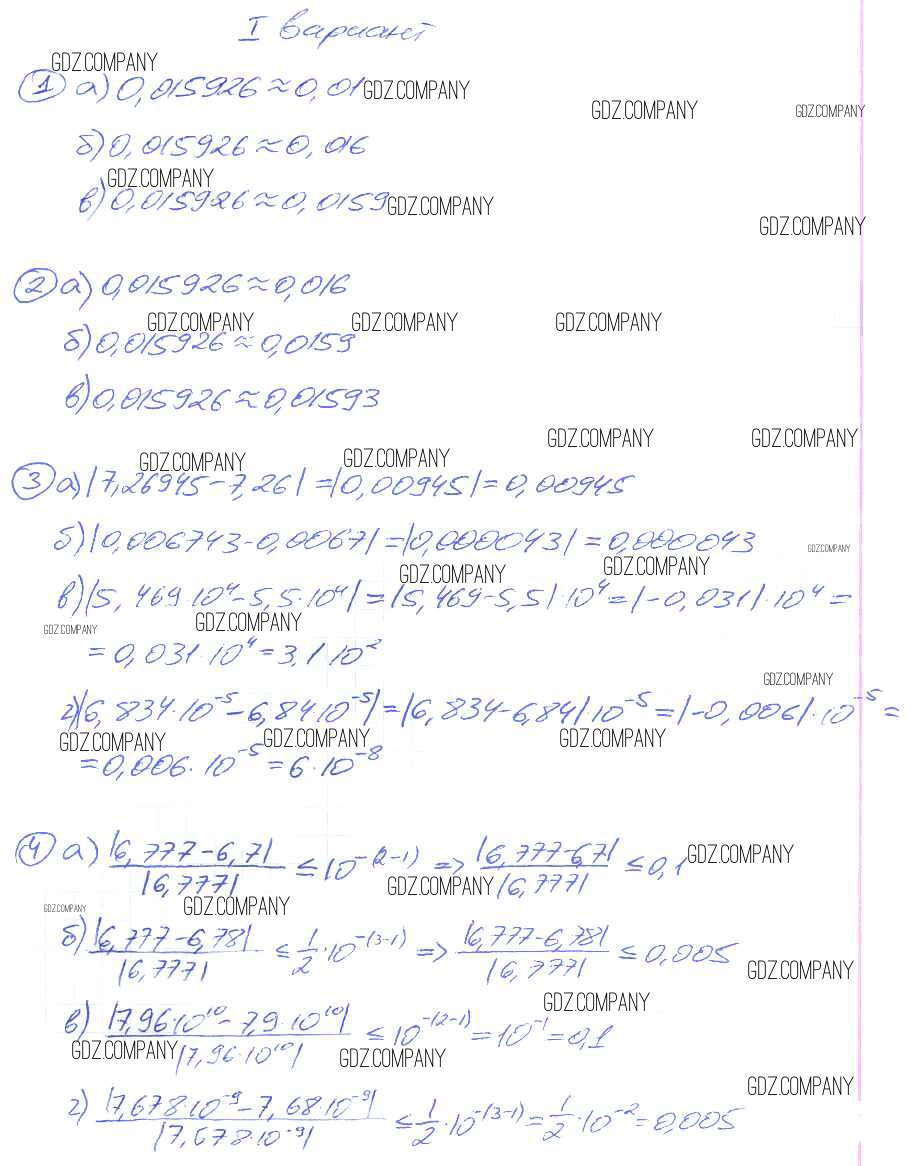 I вариант
GDZ.COMPANY
① а) 0,015926 ≈ 0,01 GDZ.COMPANY
GDZ.COMPANY GDZ.COMPANY
б) 0,015926 ≈ 0,016
GDZ.COMPANY
в) 0,015926 ≈ 0,0159 GDZ.COMPANY
GDZ.COMPANY
② а) 0,015926 ≈ 0,016
GDZ.COMPANY GDZ.COMPANY GDZ.COMPANY
б) 0,015926 ≈ 0,0159
в) 0,015926 ≈ 0,01593
GDZ.COMPANY GDZ.COMPANY
GDZ.COMPANY GDZ.COMPANY
③ а) |7,26945 - 7,26| = |0,00945| = 0,00945
б) |0,006743 - 0,0067| = |0,000043| = 0,000043
GDZ.COMPANY
GDZ.COMPANY GDZ.COMPANY
в) |5,469·10⁴ - 5,5·10⁴| = |5,469 - 5,5|·10⁴ = |-0,031|·10⁴ =
GDZ.COMPANY GDZ.COMPANY
= 0,031·10⁴ = 3,1·10²
GDZ.COMPANY
г) |6,834·10⁻⁵ - 6,84·10⁻⁵| = |6,834 - 6,84|·10⁻⁵ = |-0,006|·10⁻⁵ =
GDZ.COMPANY GDZ.COMPANY GDZ.COMPANY
= 0,006·10⁻⁵ = 6·10⁻⁸
④ а) |6,777 - 6,7| / |6,777| ≤ 10⁻⁽²⁻¹⁾ => |6,777 - 6,7| / |6,777| ≤ 0,1 GDZ.COMPANY
GDZ.COMPANY
GDZ.COMPANY GDZ.COMPANY
б) |6,777 - 6,78| / |6,777| ≤ 1/2·10⁻⁽³⁻¹⁾ => |6,777 - 6,78| / |6,777| ≤ 0,005
GDZ.COMPANY
GDZ.COMPANY
в) |7,96·10¹⁰ - 7,9·10¹⁰| / |7,96·10¹⁰| ≤ 10⁻⁽²⁻¹⁾ = 10⁻¹ = 0,1
GDZ.COMPANY GDZ.COMPANY
GDZ.COMPANY
г) |7,678·10⁻⁹ - 7,68·10⁻⁹| / |7,678·10⁻⁹| ≤ 1/2·10⁻⁽³⁻¹⁾ = 1/2·10⁻² = 0,005